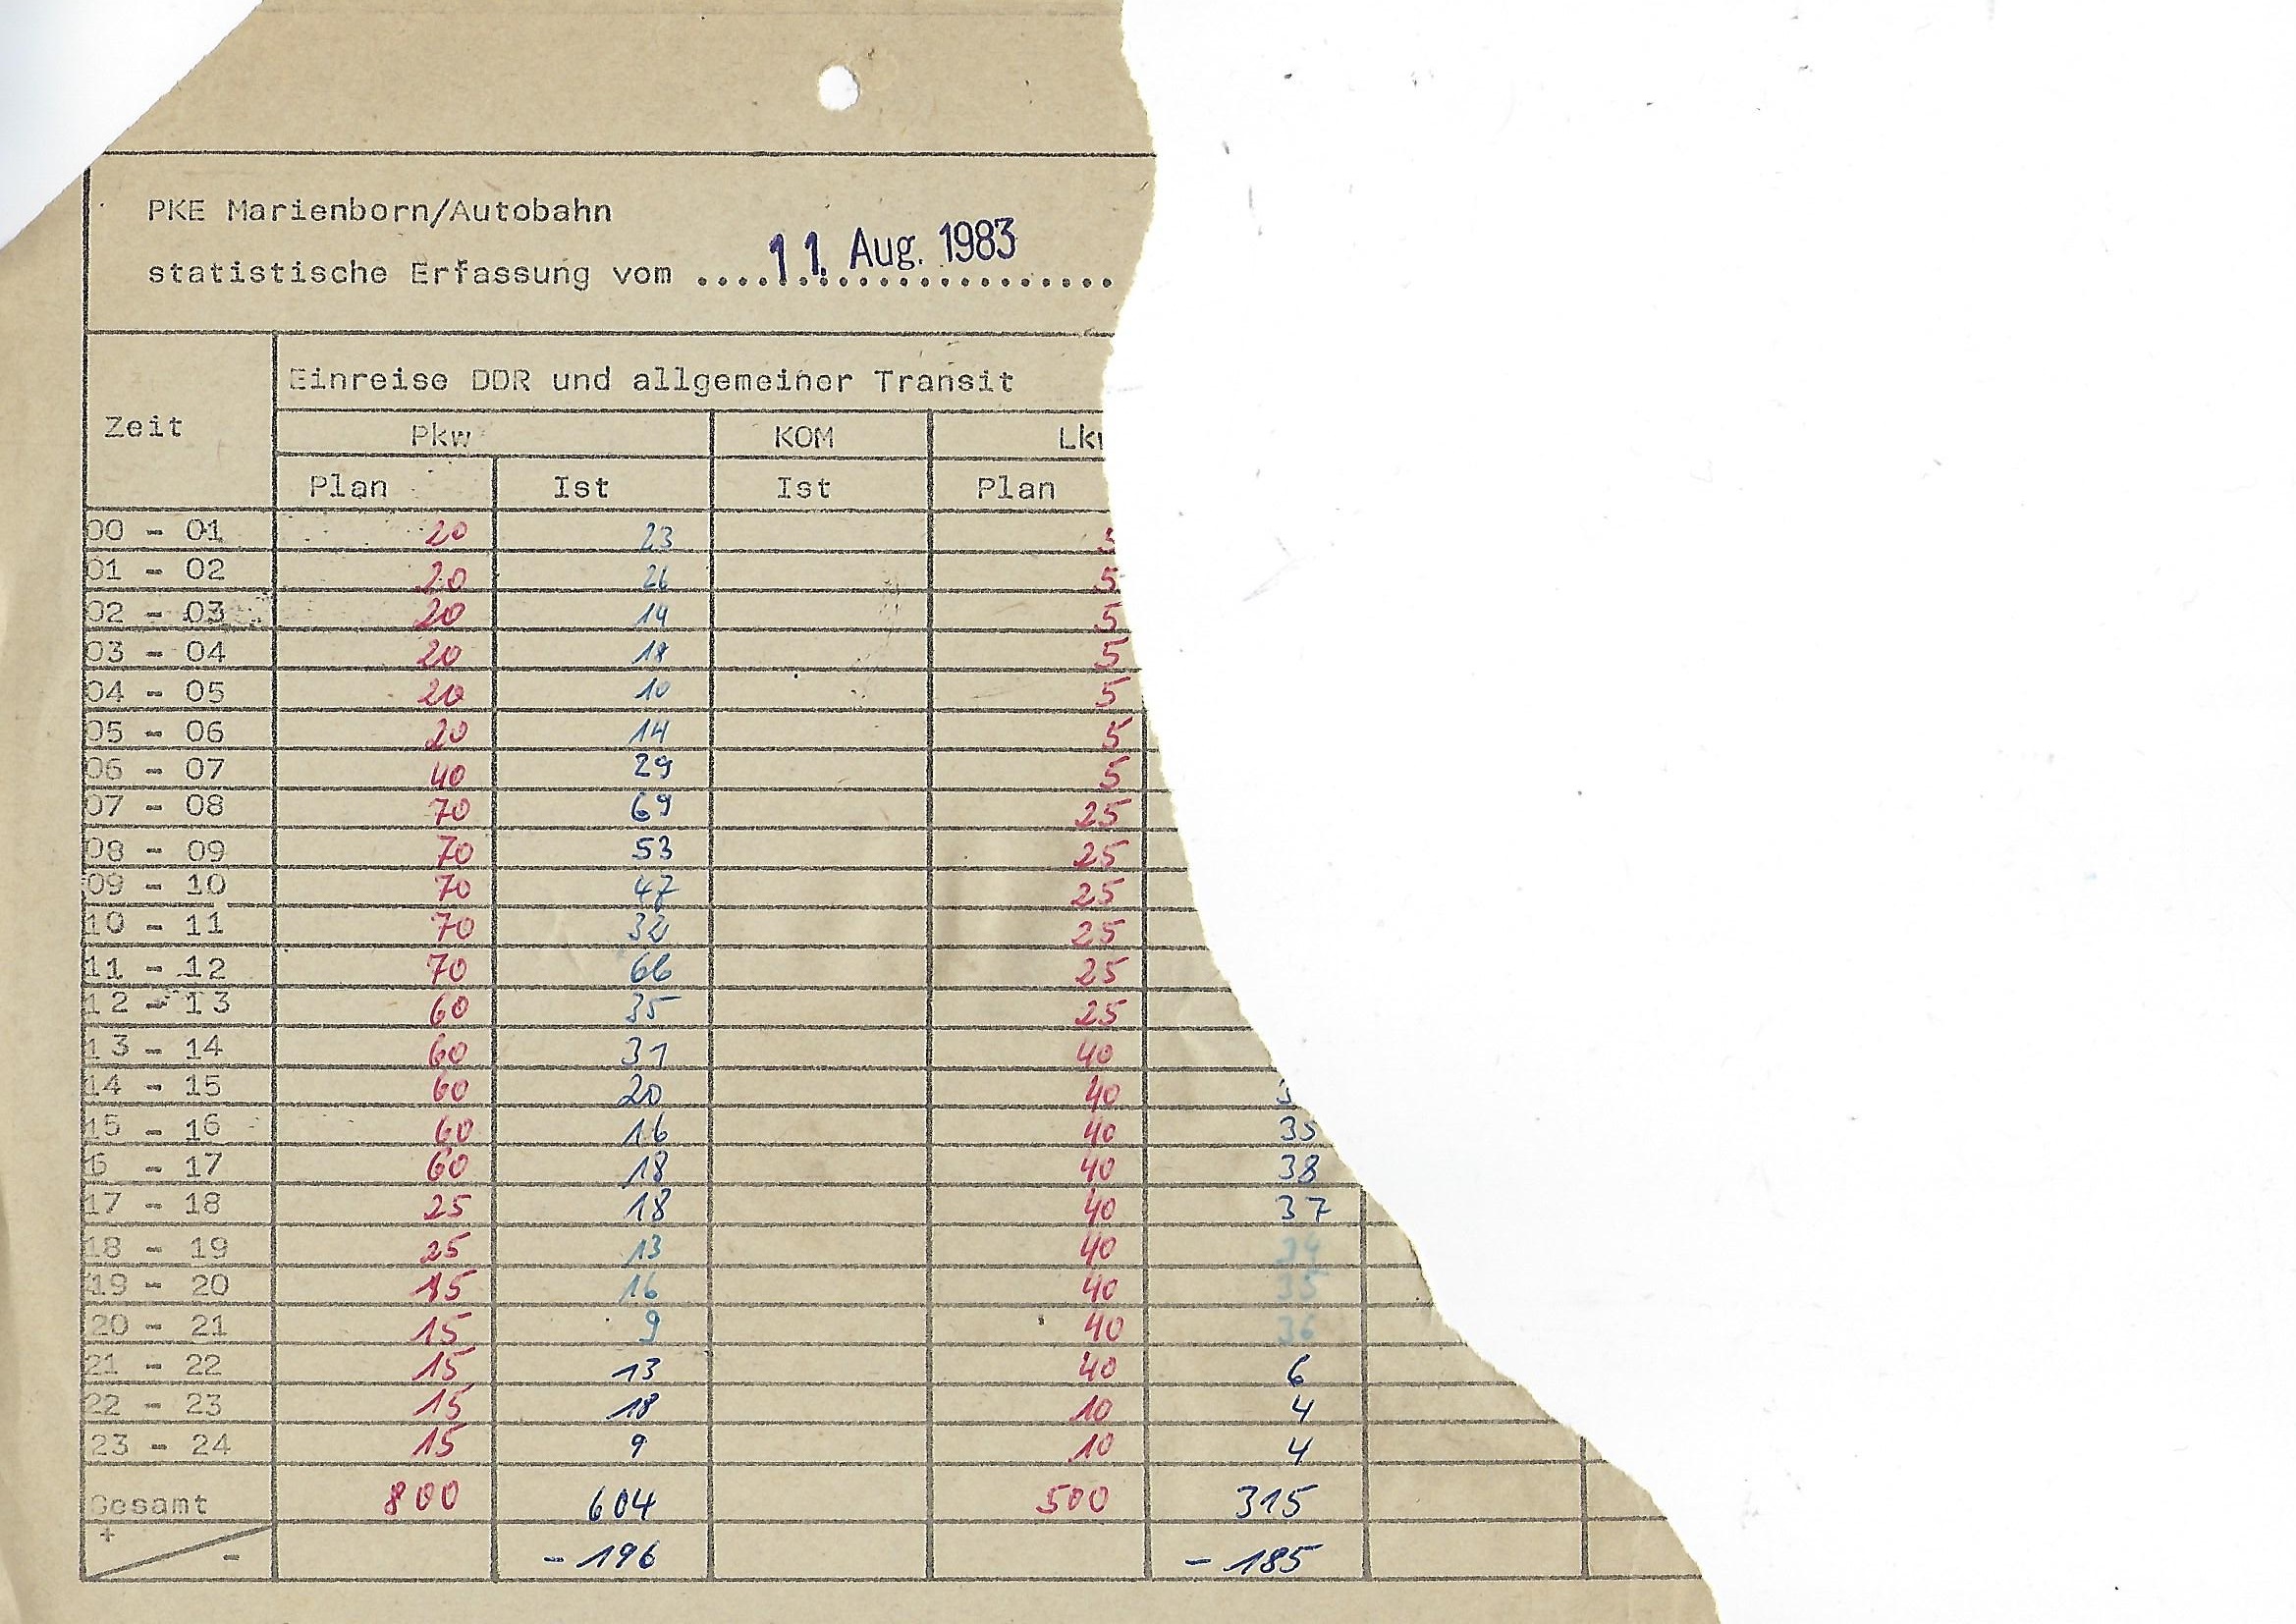 PKE Marienborn/Autobahn
statistische Erfassung vom ....11. Aug. 1983....
Zeit Einreise DDR und allgemeiner Transit
Pkw KOM Lk
Plan Ist Ist Plan
00 - 01 20 23
01 - 02 20 26 5
02 - 03 20 14 5
03 - 04 20 18 5
04 - 05 20 10 5
05 - 06 20 14 5
06 - 07 40 29 5
07 - 08 70 69 25
08 - 09 70 53 25
09 - 10 70 47 25
10 - 11 70 32 25
11 - 12 70 66 25
12 - 13 60 35 25
13 - 14 60 31 40
14 - 15 60 20 40
15 - 16 60 16 40 35
6 - 17 60 18 40 38
17 - 18 25 18 40 37
18 - 19 25 13 40
19 - 20 15 16 40 35
20 - 21 15 9 40 36
21 - 22 15 13 40 6
22 - 23 15 18 10 4
23 - 24 15 9 10 4
Gesamt 800 604 500 315
+ - - 196 - 185